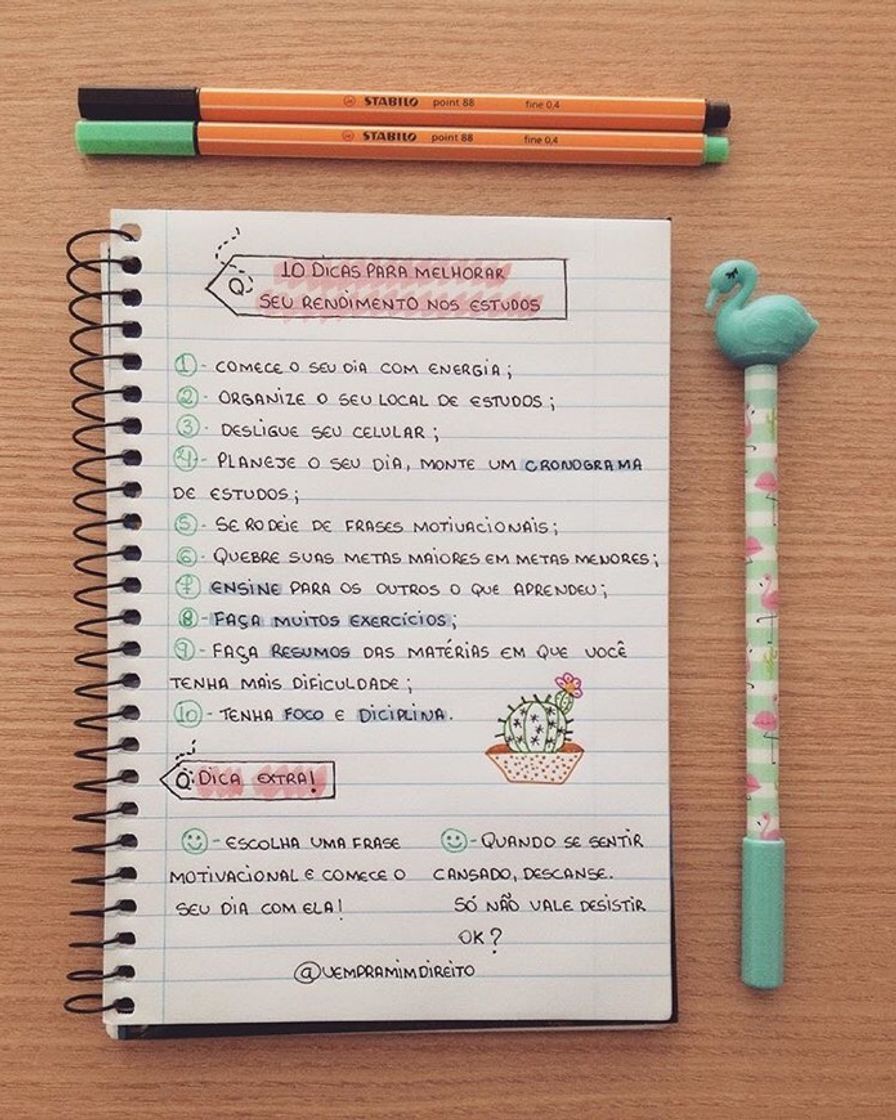 STABILO point 88 fine 0,4
STABILO point 88 fine 0,4
10 DICAS PARA MELHORAR
SEU RENDIMENTO NOS ESTUDOS
1 - COMECE O SEU DIA COM ENERGIA;
2 - ORGANIZE O SEU LOCAL DE ESTUDOS;
3 - DESLIGUE SEU CELULAR;
4 - PLANEJE O SEU DIA, MONTE UM CRONOGRAMA
DE ESTUDOS;
5 - SE RODEIE DE FRASES MOTIVACIONAIS;
6 - QUEBRE SUAS METAS MAIORES EM METAS MENORES;
7 ENSINE PARA OS OUTROS O QUE APRENDEU;
8 - FAÇA MUITOS EXERCÍCIOS;
9 - FAÇA RESUMOS DAS MATÉRIAS EM QUE VOCÊ
TENHA MAIS DIFICULDADE;
10 - TENHA FOCO E DICIPLINA.
DICA EXTRA!
- ESCOLHA UMA FRASE
MOTIVACIONAL E COMECE O
SEU DIA COM ELA!
- QUANDO SE SENTIR
CANSADO, DESCANSE.
SÓ NÃO VALE DESISTIR
OK?
@VEMPRAMIMDIREITO